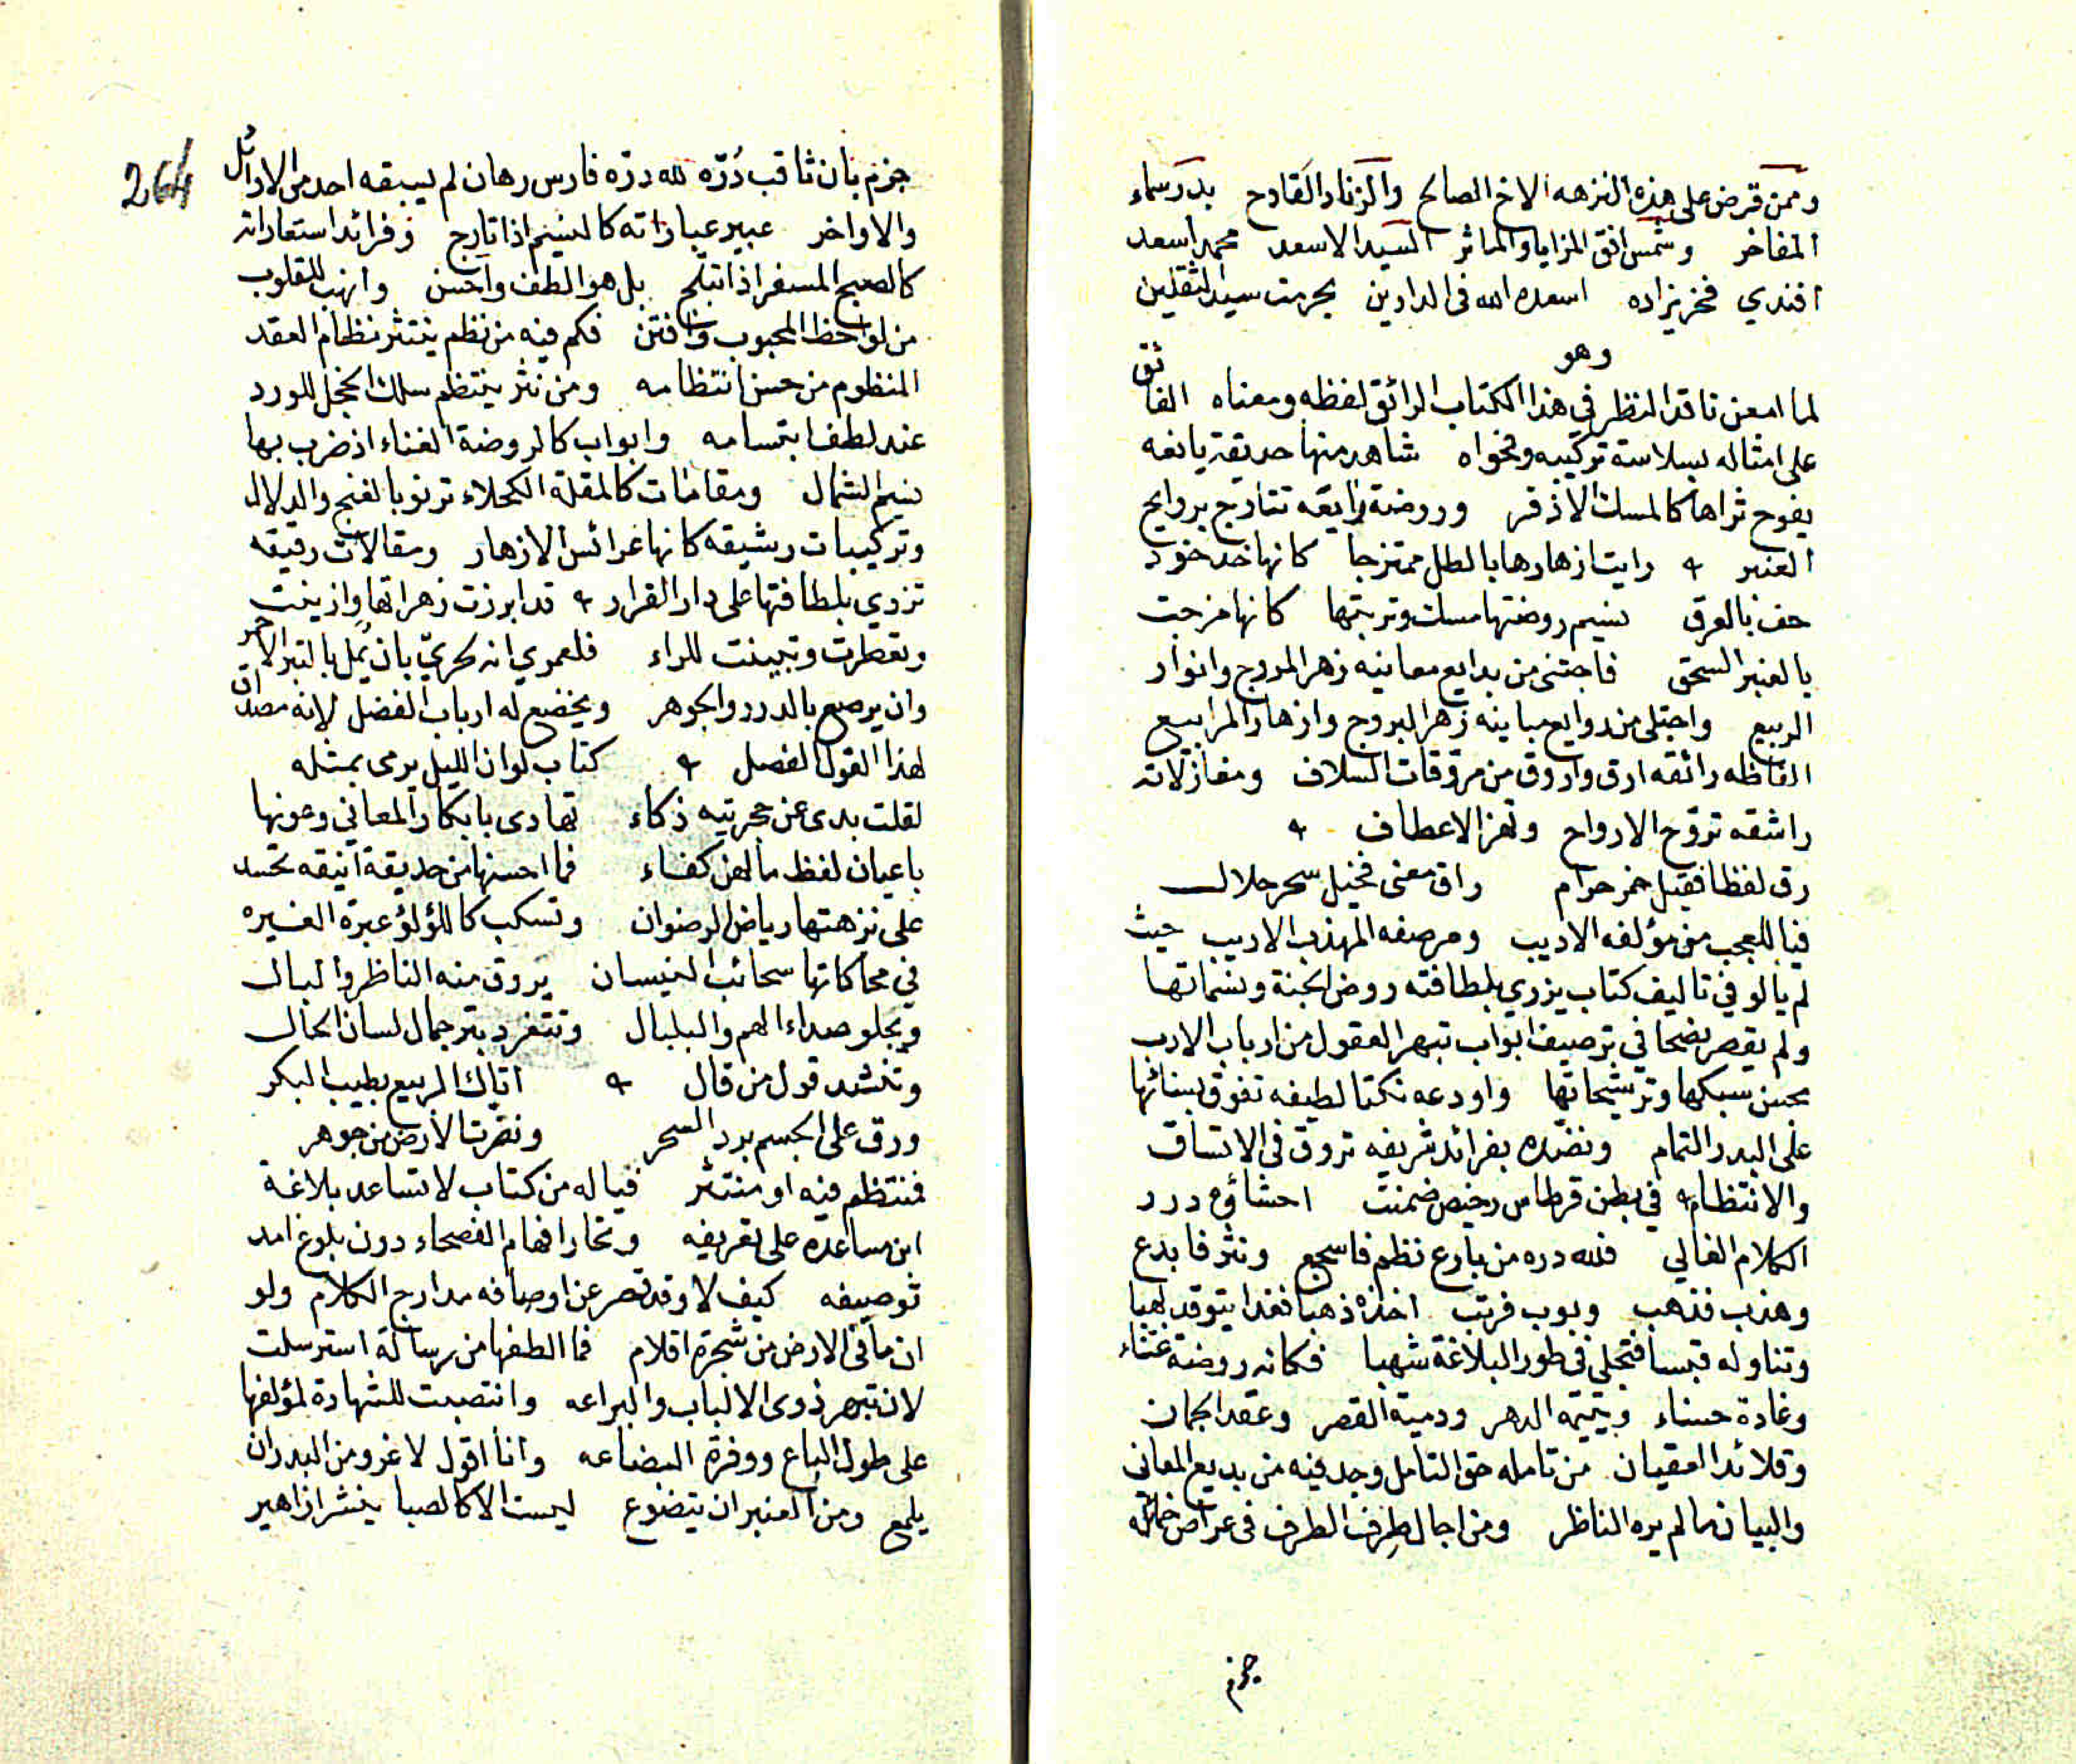 وممن قرض على هذه النزهه الاخ الصالح والزناد القادح بدر سماء
المفاخر وشمس افق المزايا والماثر السيد الاسعد محمد اسعد
افندي فخريزاده اسعده الله فى الدارين بحرمت سيد الثقلين
وهو
لما امعن ناقد النظر في هذا الكتاب الرائق لفظه ومعناه الفائق
على امثاله بسلاسة تركيبه وفحواه شاهد منها حديقة يانعه
يفوح ثراها كالمسك الاذفر وروضة رايقه تتارج بروايح
العنبر رايت ازهارها بالطل ممتزجا كانها خد خود
حف بالعرق نسيم روضتها مسك وتربتها كانها مزجت
بالعنبر السحق فاجتنى من بدايع معانيه زهر المروج وانوار
الربيع واجتلى من روايع مبانيه زهر البروج وازهار المرابيع
الفاظه رائقه ارق واروق من مروقات السلاف ومغازلاته
راشقه تروح الارواح وتهز الاعطاف
رق لفظا فقيل خمر حرام راق معنى فخيل سحر حلال
فيا للعجب من مؤلفه الاديب ومرصفه المهذب الاريب حيث
لم يالو في تاليف كتاب يزري بلطافته روض الجنة ونسماتها
ولم يقصر نصحا في ترصيف ابواب تبهر العقول من ارباب الادب
بحسن سبكها وترشيحاتها واودعه نكتا لطيفه تفوق بسنائها
على البدر التمام ونضده بفرائد شريفه تروق فى الاتساق
والانتظام في بطن قرطاس رخيص ضمنت احشاؤه درر
الكلام الغالي فلله دره من بارع نظم فاسجع ونثر فابدع
وهذب فذهب وبوب فرتب اخذه ذهبا فغدا يتوقد لهبا
وتناوله قبسا فتجلى فى طور البلاغة شهبا فكانه روضة غناء
وغادة حسناء ويتيمه الدهر ودمية القصر وعقد الجمان
وقلائد العقيان من تامله حق التامل وجد فيه من بديع المعانى
والبيان ما لم يره الناظر ومن اجال طرف الطرف فى عراص خمائله
جزم
264
جزم بان ثاقب دُرّه لله درّه فارس رهان لم يسبقه احد من الاوائل
والاواخر عبير عباراته كالنسيم اذا تارج وفرائد استعاراته
كالصبح المسفر اذا تبلج بل هو الطف واحسن وانهب للقلوب
من لواحظ المحبوب وافتن فكم فيه من نظم ينتثر نظام العقد
المنظوم من حسن انتظامه ومن نثر ينتظم سلك الخجل للورد
عند لطف ابتسامه وابواب كالروضة الغناء اذ ضرب بها
نسيم الشمال ومقامات كالمقلة الكحلاء ترنو بالغنج والدلال
وتركيبات رشيقه كانها عرائس الازهار ومقالات رقيقه
تزدي بلطافتها على دار القرار قد ابرزت زهراتها وازينت
وتعطرت وتبينت للراء فلعمري انه لحريّ بان يُمل بالتبر الاحمر
وان يرصع بالدرر والجوهر ويخضع له ارباب الفضل لانه مصداق
لهذا القول الفصل كتاب لو ان الليل يرمى بمثله
لقلت بدى عن حجرتيه ذكاء تهادى بابكار المعاني وعونها
باعيان لفظ ما لهن كفاء فما احسنها من حديقة انيقه تحسد
على نزهتها رياض الرضوان وتسكب كاللؤلؤ عبرة الغيره
في محاكاتها سحائب النيسان يروق منه الناظر والبال
ويجلو صداء الهم والبلبال وتتغرد بترجمال لسان الحال
وتنشد قول من قال اتاك الربيع بطيب البكر
ورق على الجسم برد السحر ونضرت الارض من جوهر
فمنتظم فيه او منتثر فياله من كتاب لا تساعد بلاغة
ابن ساعده على تعريفه وتحار افهام الفصحاء دون بلوغ امد
توصيفه كيف لا وقد قصر عن اوصافه مدارج الكلام ولو
ان ما في الارض من شجرة اقلام فما الطفها من رسالة استرسلت
لان تبهر ذوى الالباب والبراعه وانتصبت للشهادة لمؤلفها
على طول الباع ووفرة البضاعه وانا اقول لا غرو من البدر ان
يلمع ومن العنبر ان يتضوع ليست الا كالصبا ينشر ازاهير